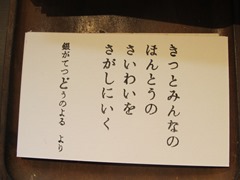 きっとみんなの
ほんとうの
さいわいを
さがしにいく
銀がてつどうのよる より